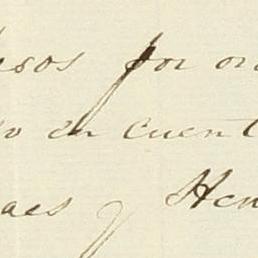 esos por or
o en cuent
aes y Hen